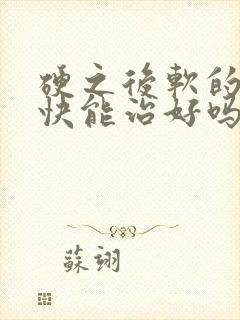 硬之後軟的
快能治好吗
蘇翊